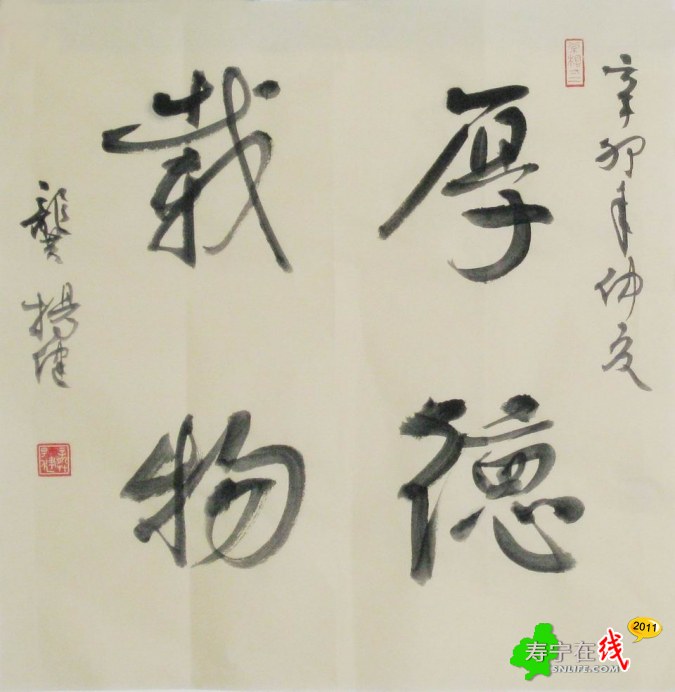 辛卯年仲夏
厚德
载物
龔楊健
2011
寿宁在线
SNLIFE.COM